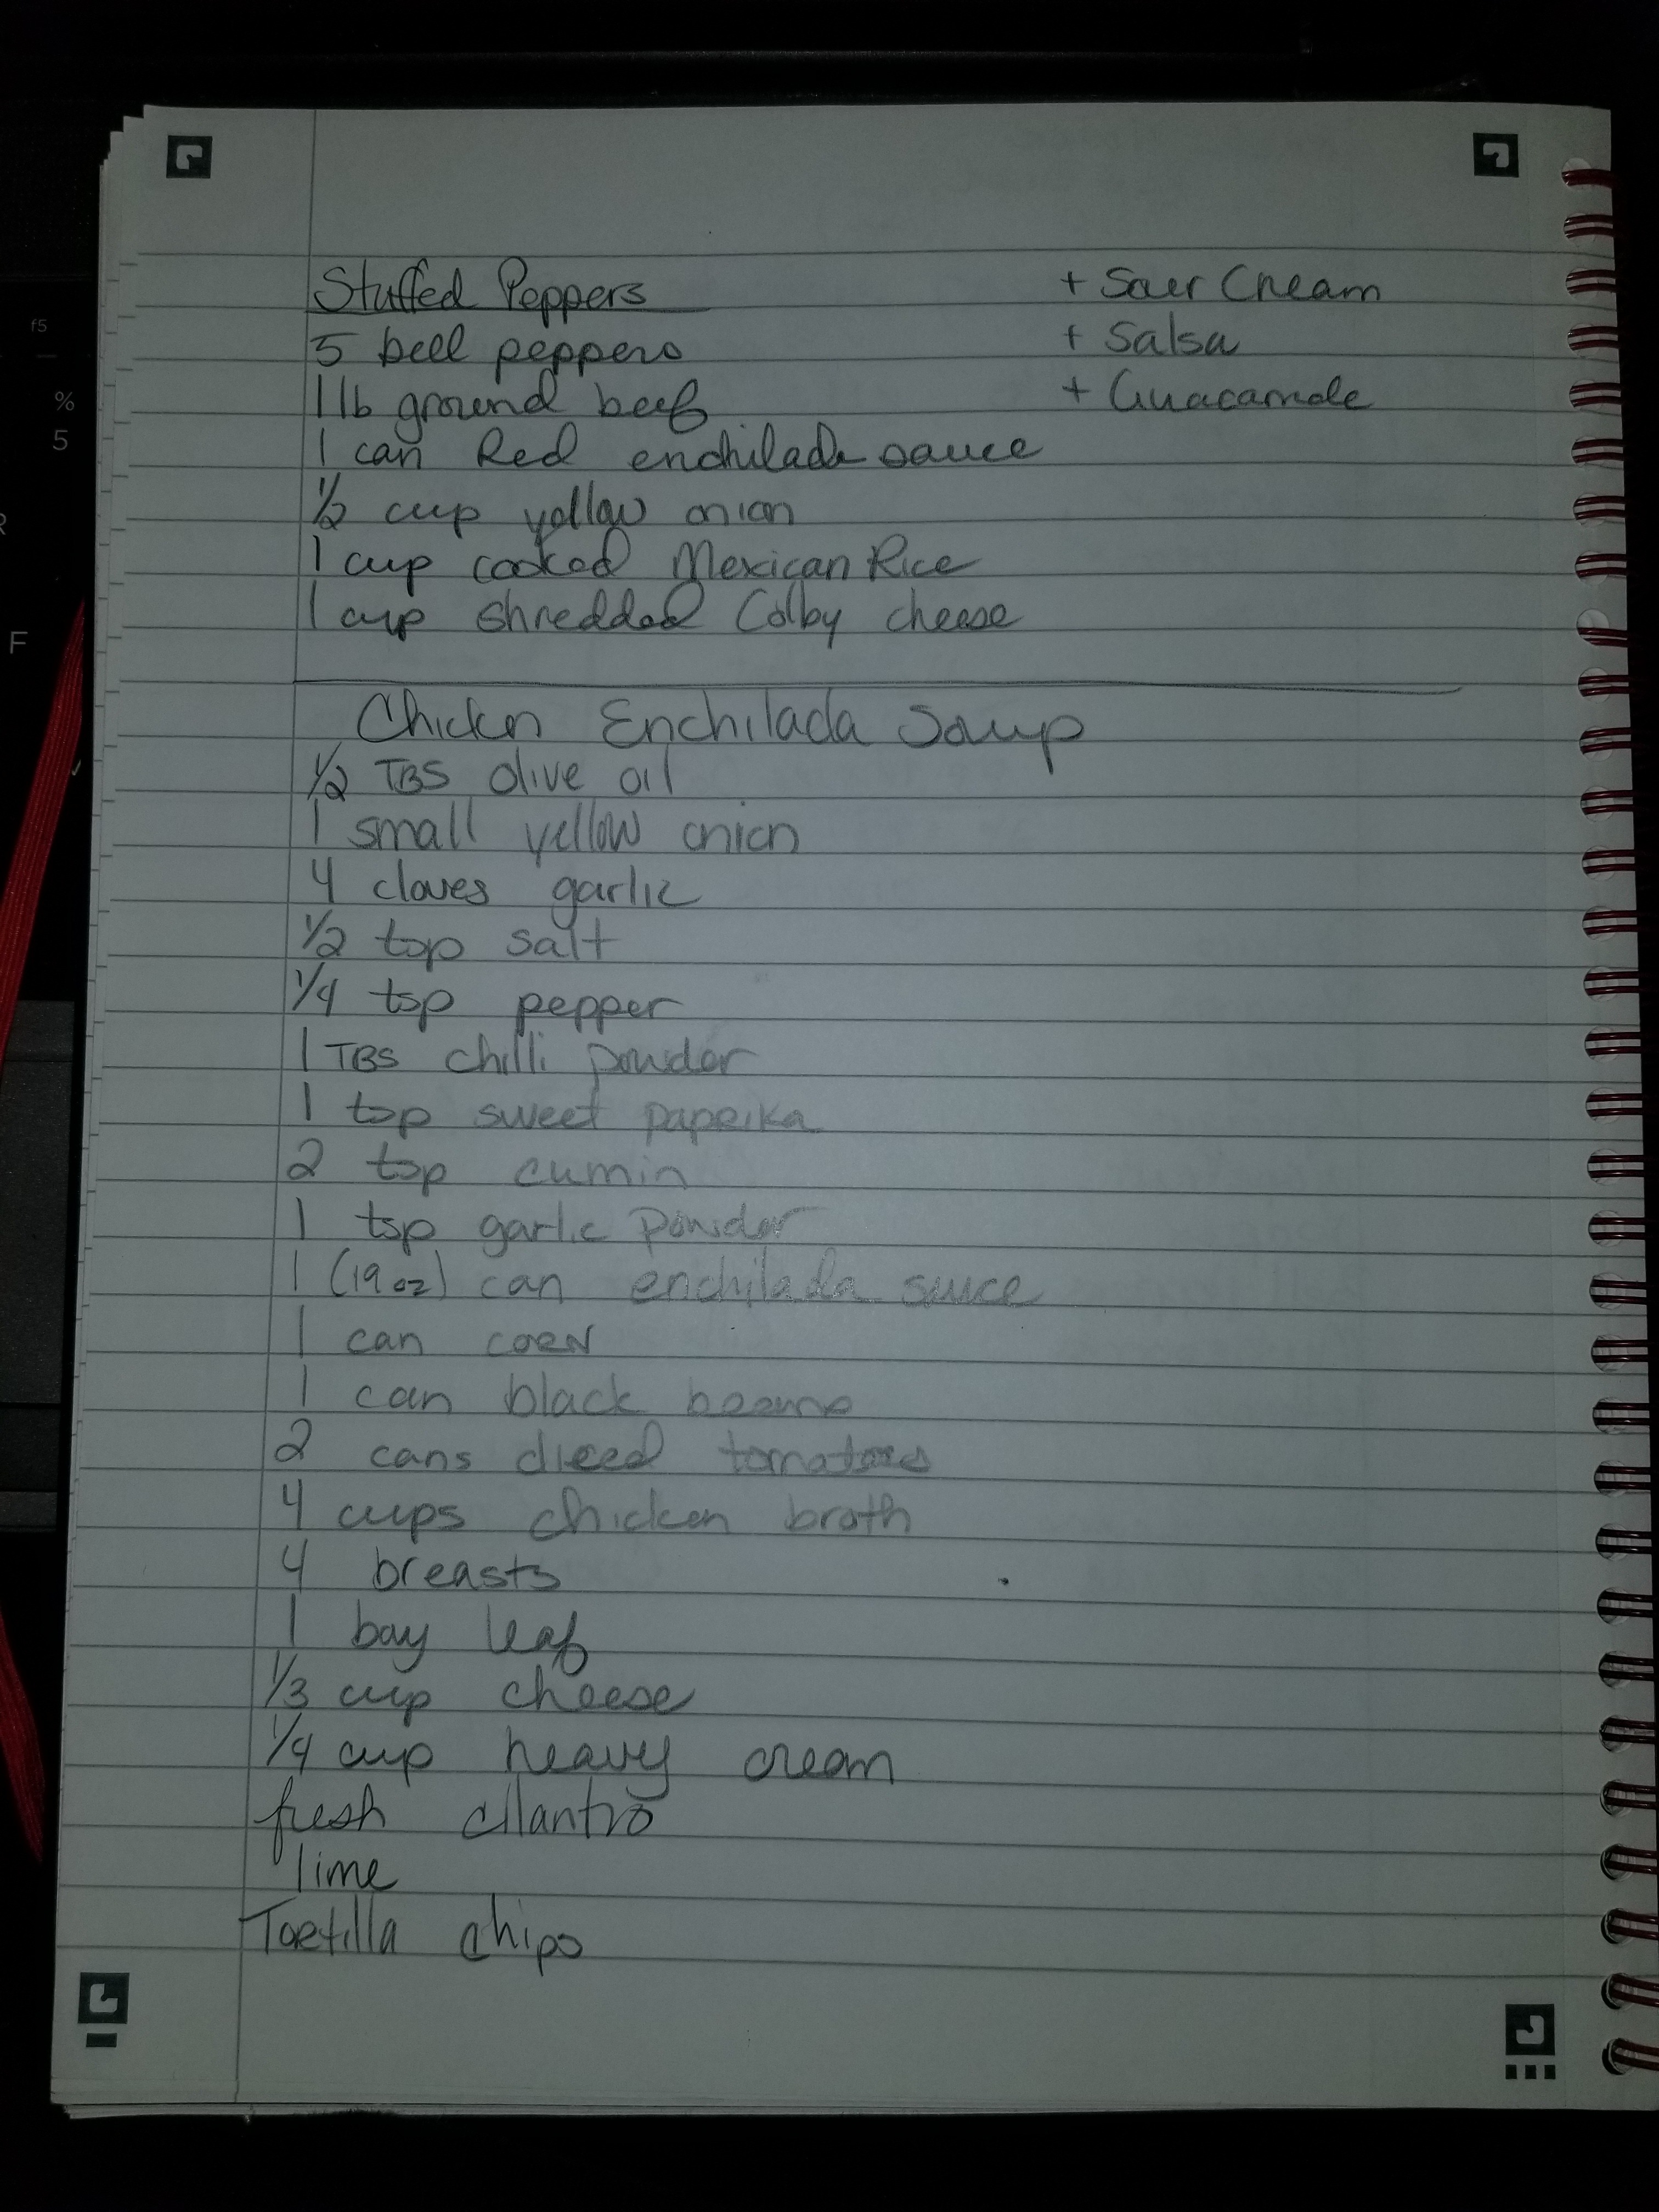 Stuffed Peppers
+ Sour Cream
5 bell peppers
+ Salsa
1 lb ground beef
+ Guacamole
1 can Red enchilada sauce
1/2 cup yellow onion
1 cup cooked Mexican Rice
1 cup shredded Colby cheese
Chickn Enchilada Soup
1/2 TBS olive oil
1 small yellow onion
4 cloves garlic
1/2 tsp salt
1/4 tsp pepper
1 TBS chilli powder
1 tsp sweet paprika
2 tsp cumin
1 tsp garlic powder
1 (19 oz) can enchilada sauce
1 can corn
1 can black beans
2 cans diced tomatoes
4 cups chicken broth
4 breasts
1 bay leaf
1/3 cup cheese
1/4 cup heavy cream
fresh cilantro
lime
Tortilla chips
f5
%
5
F